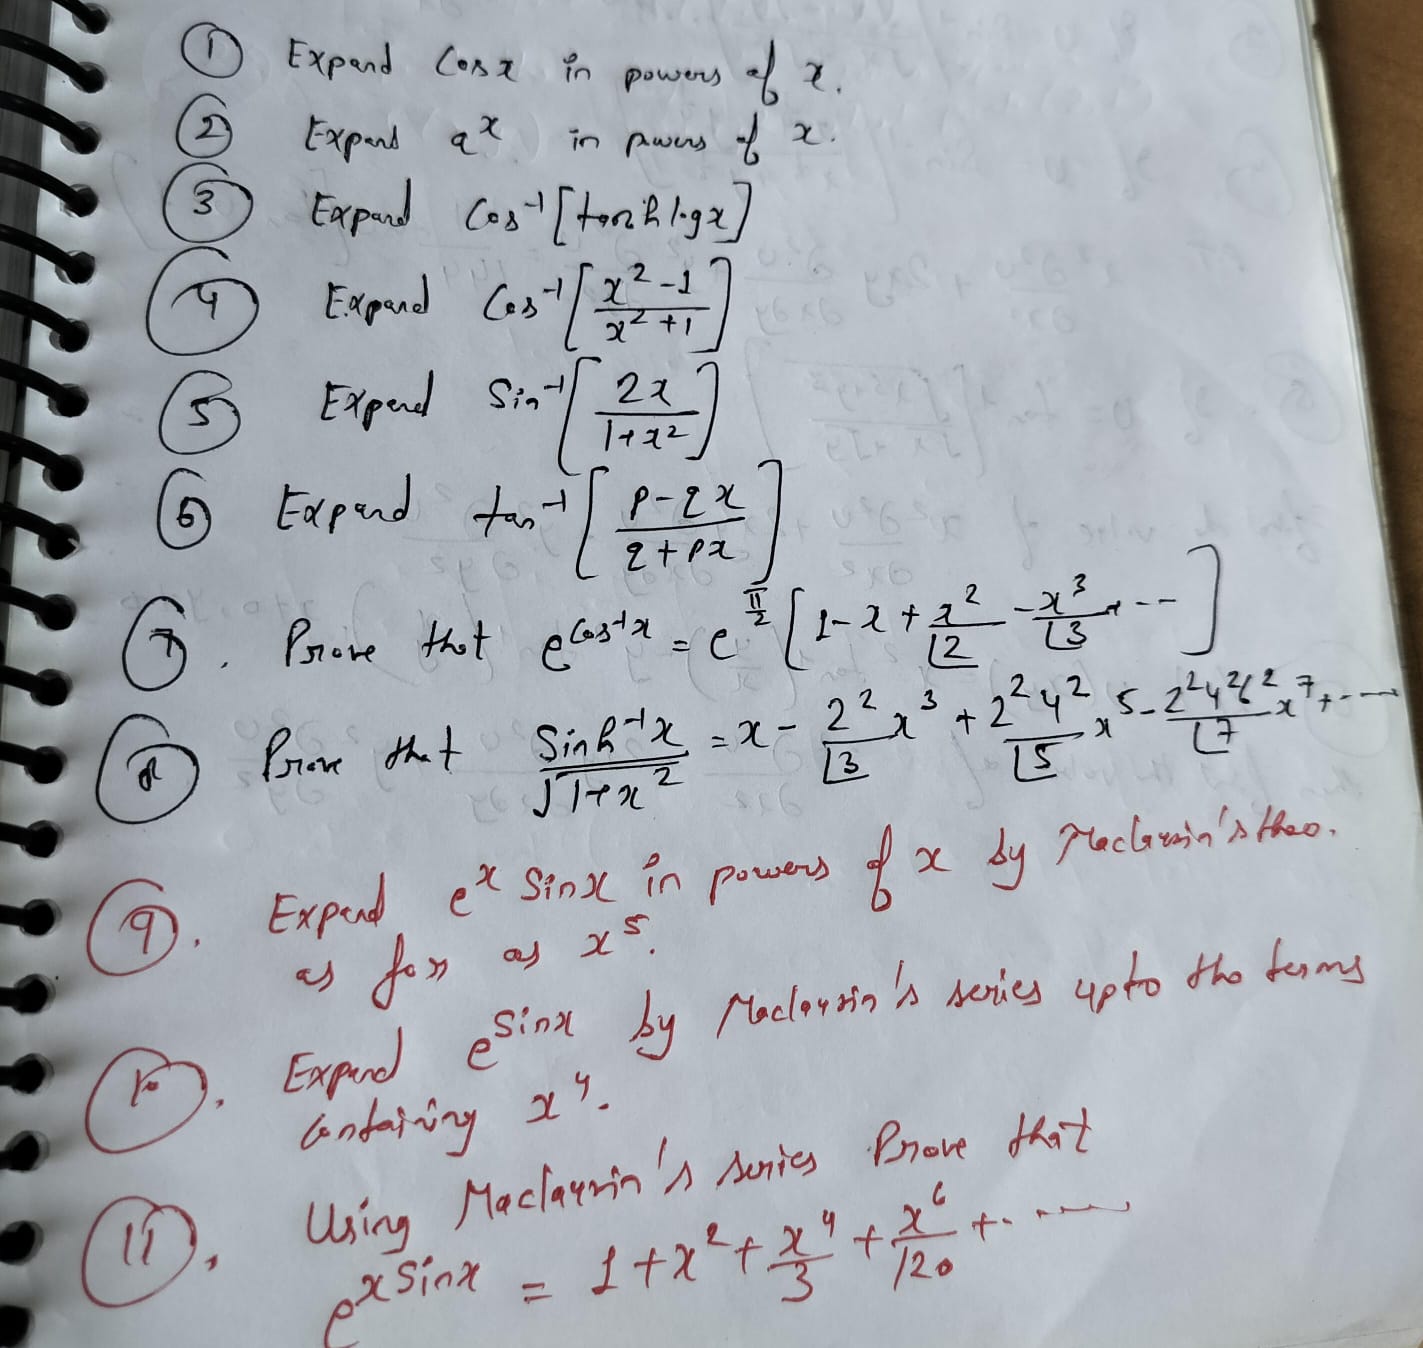 ① Expand Cos x in powers of x.
② Expand a^x in powers of x.
③ Expand Cos⁻¹[tanh log x]
④ Expand Cos⁻¹[(x²-1)/(x²+1)]
⑤ Expand Sin⁻¹[2x/(1+x²)]
⑥ Expand tan⁻¹[(p-qx)/(q+px)]
⑦. Prove that e^(Cos⁻¹x) = e^(π/2) [1-x+x²/⌊2 - x³/⌊3 + ---]
⑧ Prove that Sinh⁻¹x/√(1+x²) = x - 2²/⌊3 x³ + 2²4²/⌊5 x⁵ - 2²4²6²/⌊7 x⁷ + ----
⑨. Expand e^x Sinx in powers of x by Maclaurin's theo.
as far as x⁵.
⑩. Expand e^(Sinx) by Maclaurin's series upto the terms
Containing x⁴.
⑪. Using Maclaurin's series Prove that
e^(x Sinx) = 1 + x² + x⁴/3 + x⁶/120 + ......